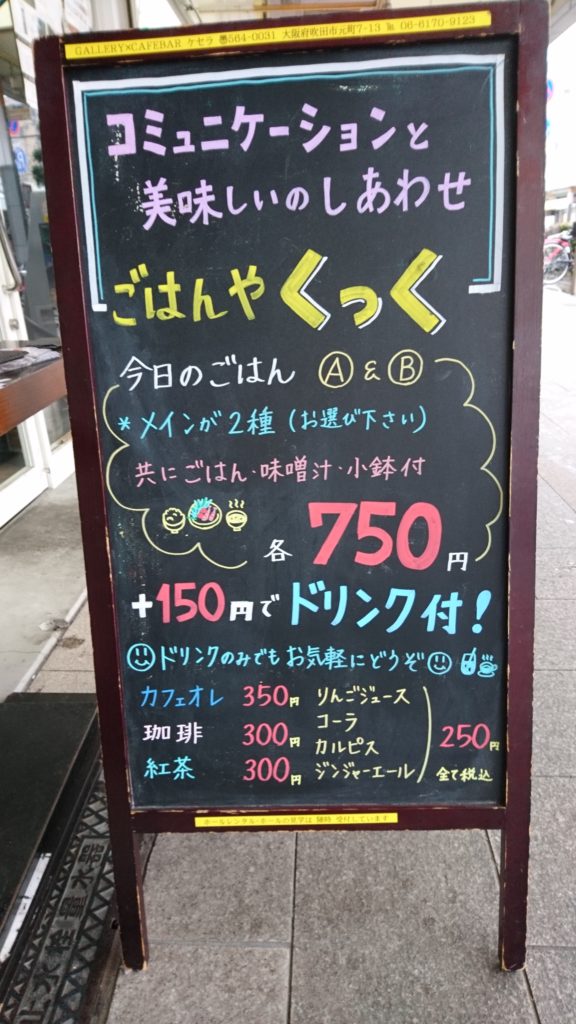 GALLERY×CAFEBAR ケセラ 〠564-0031 大阪府吹田市元町7-13 ℡ 06-6170-9123
コミュニケーションと
美味しいのしあわせ
ごはんや くっく
今日のごはん Ⓐ & Ⓑ
*メインが2種（お選び下さい）
共にごはん・味噌汁・小鉢付
各 750円
+150円でドリンク付!
ドリンクのみでもお気軽にどうぞ
カフェオレ 350円
珈琲 300円
紅茶 300円
りんごジュース
コーラ
カルピス
ジンジャーエール
250円
全て税込
ホールレンタル・ホールの見学は 随時 受付しています